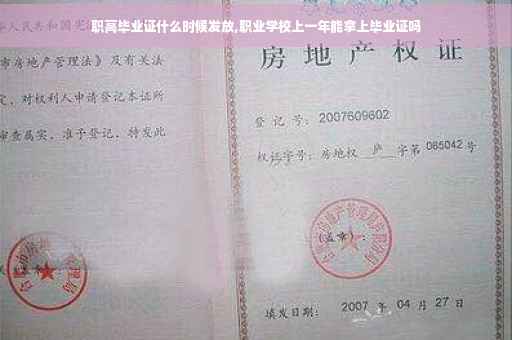 职高毕业证什么时候发放,职业学校上一年能拿上毕业证吗
人民共和国宪
市房地产管理法》及有关法
定，对权利人申请登记本证所
审查属实，准予登记，特发此
房地产权证
登记号：2007609602
权证字号：房地权 庐 字第 085042 号
（盖章）：
填发日期：2007 年 04 月 27 日